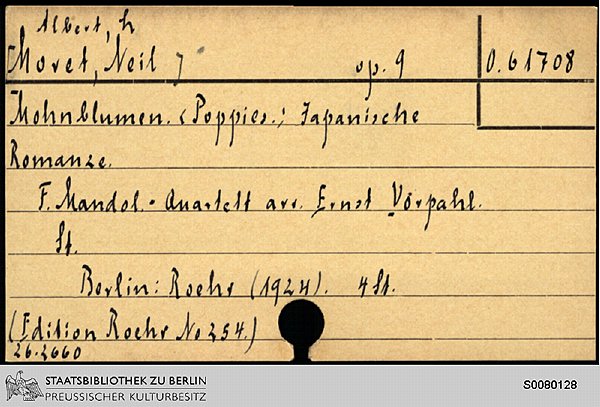 Albert, h
[Moret, Neil] op. 9 O. 61708
Mohnblumen. <Poppies.> Japanische
Romanze.
F. Mandol.-Quartett arr. Ernst Vorpahl.
St.
Berlin: Roehr (1924). 4 St.
(Edition Roehr No 254.)
26.2660
STAATSBIBLIOTHEK ZU BERLIN
PREUSSISCHER KULTURBESITZ
S0080128